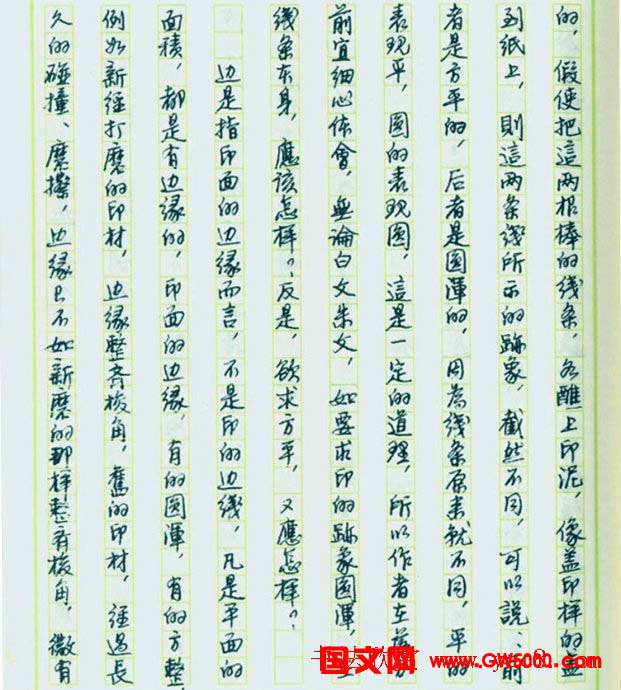 的，假使把這两根棒的线条，各醮上印泥，像盖印样的盖
到纸上，則這两条线所示的跡象，截然不同，可以說：前
者是方平的，后者是圆渾的，因為线条原来就不同，平的
表现平，圆的表现圆，這是一定的道理，所以作者在落
前宜细心体會，無論白文朱文，如要求印的跡象圆渾，
线条本身，應该怎样？反是，欲求方平，又應怎样？
边是指印面的边缘而言，不是印的边线，凡是平面的
面積，都是有边缘的，印面的边缘，有的圆渾，有的方整，
例如新经打磨的印材，边缘整齐棱角，舊的印材，经過長
久的碰撞、磨擦，边缘已不如新磨的那样整齐棱角，微有
国文网 www.GW5000.com